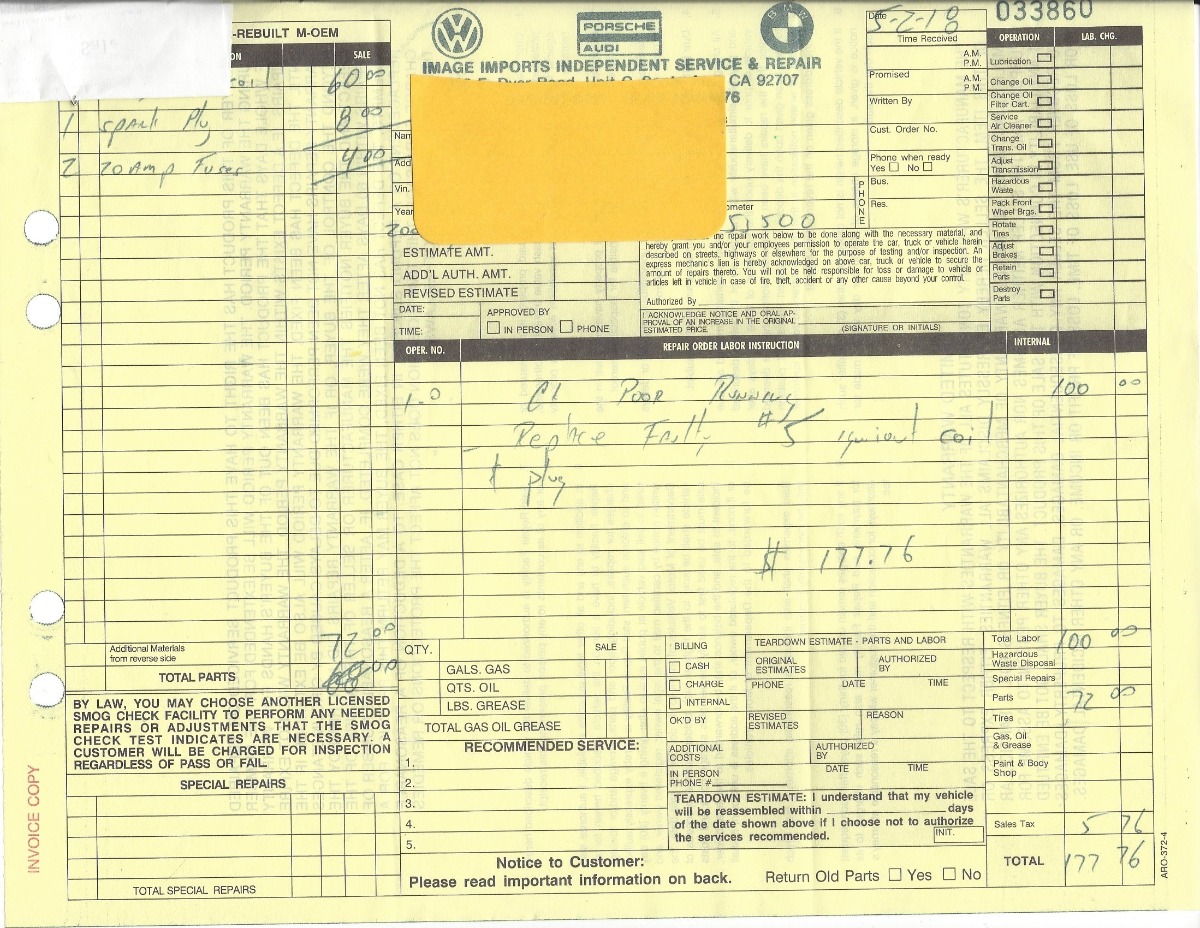 033860
-REBUILT M-OEM
SALE
60 00
1 Spark Plug 8 00
2 20 Amp Fuses 4 00
PORSCHE
AUDI
BMW
IMAGE IMPORTS INDEPENDENT SERVICE & REPAIR
CA 92707
76
Date
Time Received
A.M.
P.M.
Promised
A.M.
P.M.
Written By
Cust. Order No.
Phone when ready
Yes No
PHONE
Bus.
Res.
Nam
Add
Vin.
Year
ometer
OPERATION LAB. CHG.
Lubrication
Change Oil
Change Oil
Filter Cart.
Service
Air Cleaner
Change
Trans. Oil
Adjust
Transmission
Hazardous
Waste
Pack Front
Wheel Brgs.
Rotate
Tires
Adjust
Brakes
Retain
Parts
Destroy
Parts
ESTIMATE AMT.
ADD'L AUTH. AMT.
REVISED ESTIMATE
DATE:
TIME:
APPROVED BY
IN PERSON PHONE
the repair work below to be done along with the necessary material, and
hereby grant you and/or your employees permission to operate the car, truck or vehicle herein
described on streets, highways or elsewhere for the purpose of testing and/or inspection. An
express mechanic's lien is hereby acknowledged on above car, truck or vehicle to secure the
amount of repairs thereto. You will not be held responsible for loss or damage to vehicle or
articles left in vehicle in case of fire, theft, accident or any other cause beyond your control.
Authorized By
I ACKNOWLEDGE NOTICE AND ORAL AP-
PROVAL OF AN INCREASE IN THE ORIGINAL
ESTIMATED PRICE.
(SIGNATURE OR INITIALS)
OPER. NO. REPAIR ORDER LABOR INSTRUCTION INTERNAL
1-0 CI Poor Running 100 00
Replace Faulty #5 ignition coil
& plug
$ 177.76
Additional Materials
from reverse side
72 00
TOTAL PARTS
BY LAW, YOU MAY CHOOSE ANOTHER LICENSED
SMOG CHECK FACILITY TO PERFORM ANY NEEDED
REPAIRS OR ADJUSTMENTS THAT THE SMOG
CHECK TEST INDICATES ARE NECESSARY. A
CUSTOMER WILL BE CHARGED FOR INSPECTION
REGARDLESS OF PASS OR FAIL.
SPECIAL REPAIRS
TOTAL SPECIAL REPAIRS
INVOICE COPY
QTY. SALE
GALS. GAS
QTS. OIL
LBS. GREASE
TOTAL GAS OIL GREASE
RECOMMENDED SERVICE:
1.
2.
3.
4.
5.
BILLING
CASH
CHARGE
INTERNAL
OK'D BY
ADDITIONAL
COSTS
IN PERSON
PHONE #
TEARDOWN ESTIMATE - PARTS AND LABOR
ORIGINAL
ESTIMATES
AUTHORIZED
BY
PHONE DATE TIME
REVISED
ESTIMATES
REASON
AUTHORIZED
BY
DATE TIME
TEARDOWN ESTIMATE: I understand that my vehicle
will be reassembled within days
of the date shown above if I choose not to authorize
the services recommended.
INIT.
Notice to Customer:
Please read important information on back.
Return Old Parts Yes No
Total Labor 100 00
Hazardous
Waste Disposal
Special Repairs
Parts 72 00
Tires
Gas, Oil
& Grease
Paint & Body
Shop
Sales Tax 5 76
TOTAL 177 76
ARO-372-4